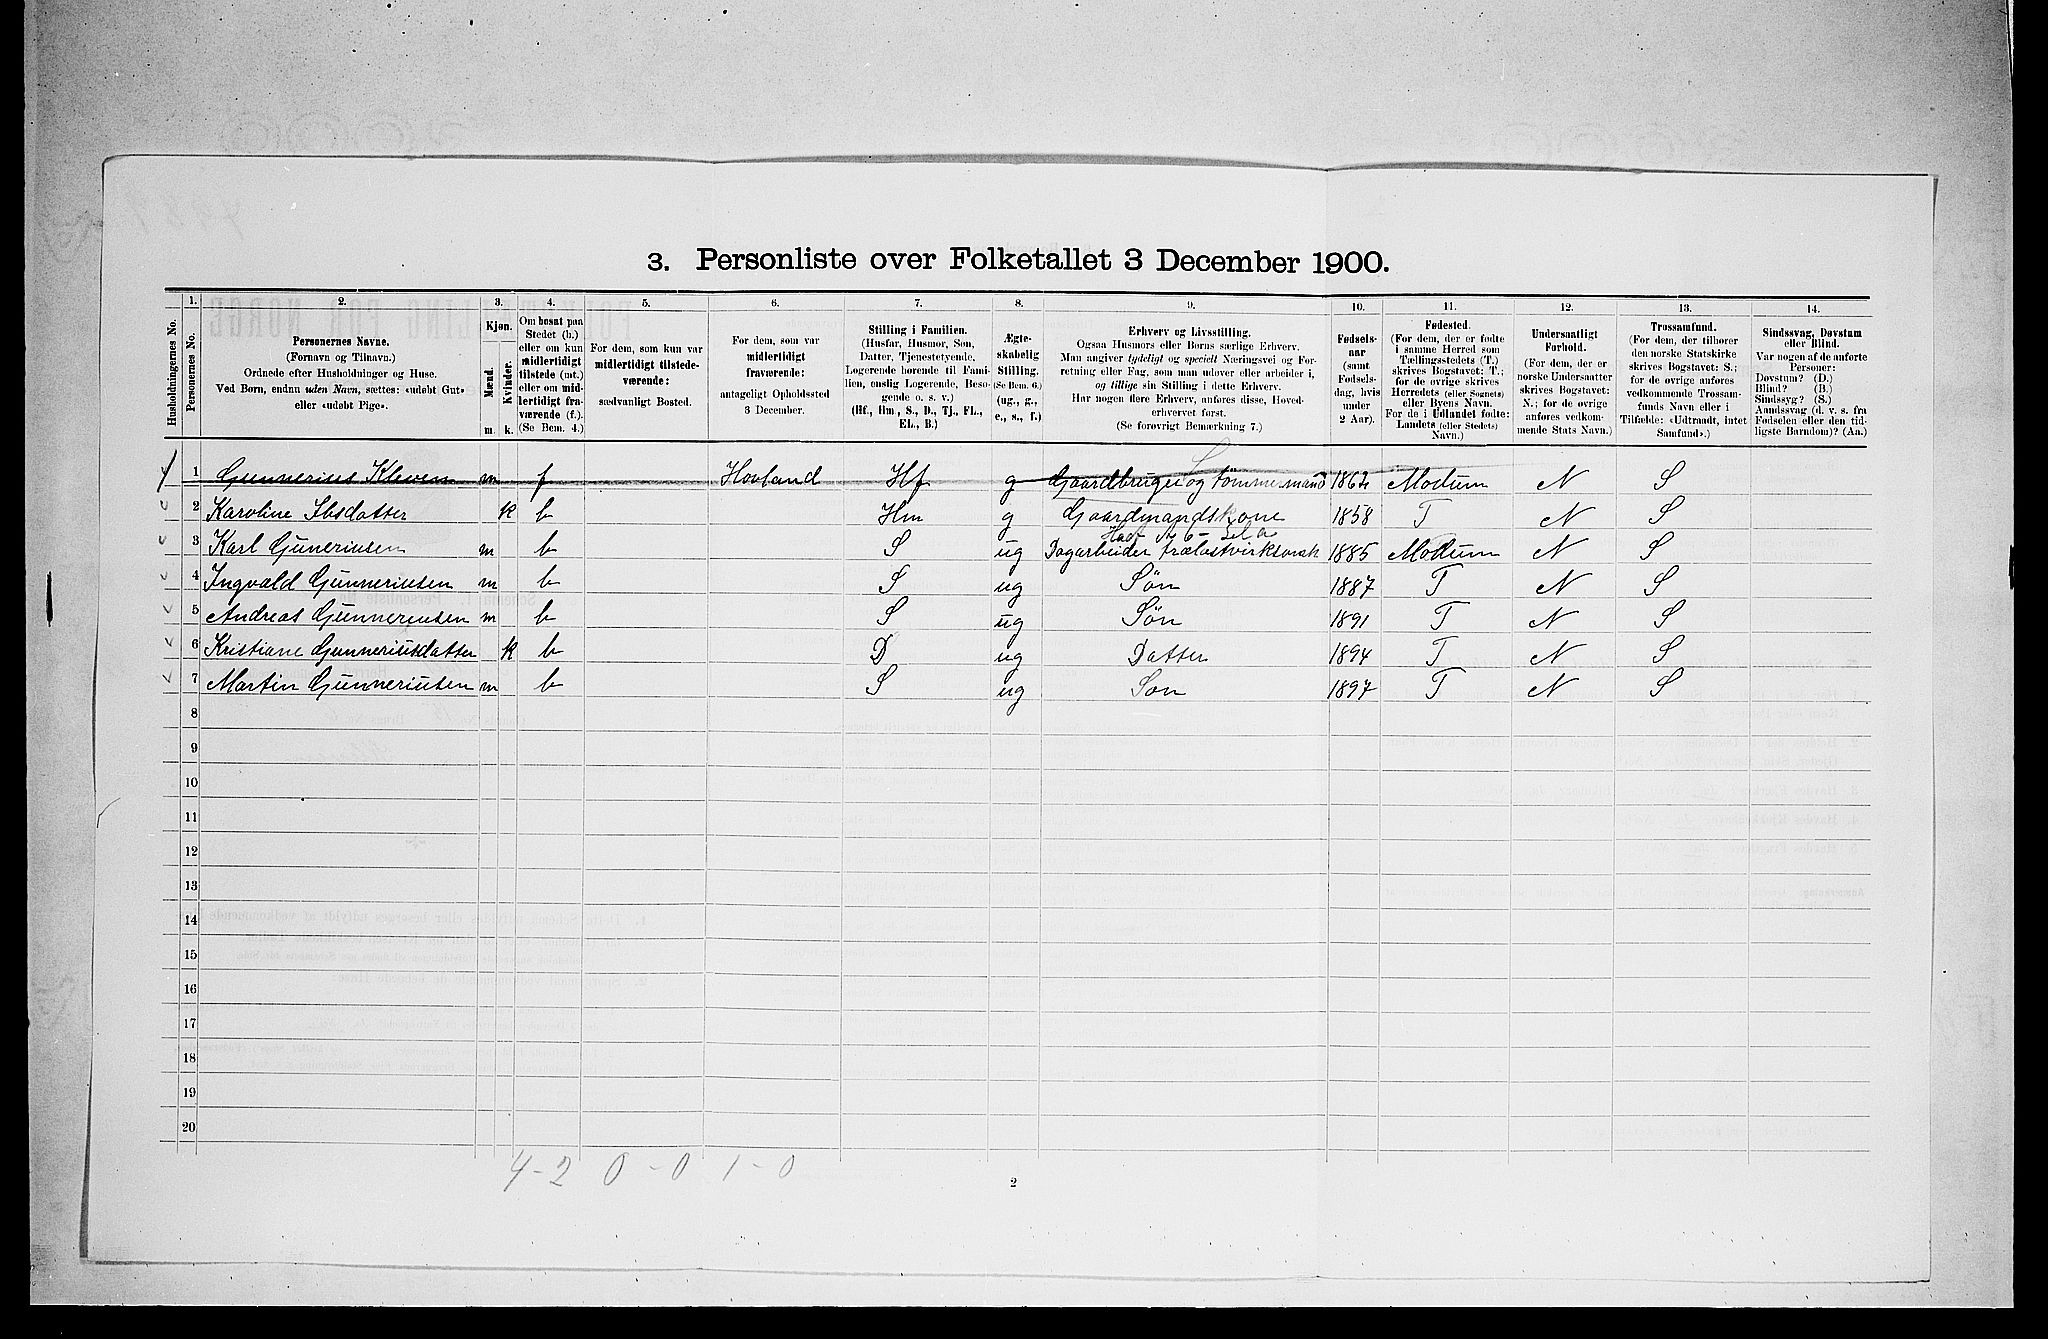 3. Personliste over Folketallet 3 December 1900.
Husholdningernes No.
1.
Personernes No.
2.
Personernes Navne.
(Fornavn og Tilnavn.)
Ordnede efter Husholdninger og Huse.
Ved Børn, endnu uden Navn, sættes: «udøbt Gut»
eller «udøbt Pige».
3.
Kjøn.
Mænd.
Kvinder.
m. k.
4.
Om bosat paa
Stedet (b.)
eller om kun
midlertidigt
tilstede (mt.)
eller om mid-
lertidigt fra-
værende (f.).
(Se Bem. 4.)
5.
For dem, som kun var
midlertidigt tilstede-
værende:
sædvanligt Bosted.
6.
For dem, som var
midlertidigt
fraværende:
antageligt Opholdssted
3 December.
7.
Stilling i Familien.
(Husfar, Husmor, Søn,
Datter, Tjenestetyende,
Logerende hørende til Fami-
lien, enslig Logerende, Besø-
gende o. s. v.)
(Hf., Hm., S., D., Tj., FL.,
EL., B.)
8.
Ægte-
skabelig
Stilling.
(Se Bem. 6.)
(ug., g.,
e., s., f.)
9.
Erhverv og Livsstilling.
Ogsaa Husmors eller Børns særlige Erhverv.
Man angiver tydeligt og specielt Næringsvei og For-
retning eller Fag, som man udøver eller arbeider i,
og tillige sin Stilling i dette Erhverv.
Har nogen flere Erhverv, anføres disse, Hoved-
erhvervet først.
(Se forøvrigt Bemærkning 7.)
10.
Fødsels-
aar
(samt
Fødsels-
dag, hvis
under
2 Aar).
11.
Fødested.
(For dem, der er fødte
i samme Herred som
Tællingsstedets (T.)
skrives Bogstavet: T.;
for de øvrige skrives
Herredets (eller Sognets)
eller Byens Navn.
For de i Udlandet fødte:
Landets (eller Stedets)
Navn.)
12.
Undersaatligt
Forhold.
(For dem, der er
norske Undersaatter
skrives Bogstavet:
N.; for de øvrige
anføres vedkom-
mende Stats Navn.)
13.
Trossamfund.
(For dem, der tilhører
den norske Statskirke
skrives Bogstavet: S.;
for de øvrige anføres
vedkommende Trossam-
funds Navn eller i
Tilfælde: «Udtraadt, intet
Samfund».)
14.
Sindssvag, Døvstum
eller Blind.
Var nogen af de anførte
Personer:
Døvstum? (D.)
Blind? (B.)
Sindssyg? (S.)
Aandssvag (d. v. s. fra
Fødselen eller den tid-
ligste Barndom)? (Aa.)
1 Gunnerius Kleven m f Hovland Hf g Gaardbruger og tømmermand 1862 Modum N S
2 Karoline Ibsdatter k b Hm g Gaardmandskone 1858 T N S
3 Karl Guneriusen m b S ug Dagarbeider træløstvirksomh 1885 Modum N S
4 Ingvald Gunneriusen m b S ug Søn 1887 T N S
5 Andreas Gunneriusen m b S ug Søn 1891 T N S
6 Kristiane Gunneriusdatter k b D ug Datter 1894 T N S
7 Martin Gunneriusen m b S ug Søn 1897 T N S
8
9
10
11
12
13
14
15
16
17
18
19
20
4-2 0-0 1-0
2